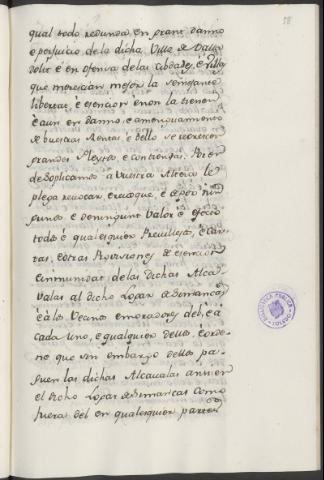 18
qual todo redunda en grant danno
e perjuicio de la dicha Villa de Valla-
dolit e en ofensa de las cibdades, e Villas
que merescian mejor la semejante
libertat, e esencion e non la tienen
e aun en danno e amenguamiento
de buestras Rentas, e dello se recrescen
grandes Pleytos e contiendas. Por en-
de Soplicamos a Vuestra Alteza le
plega revocar, e revoque, e dar por nin-
guno, e de ningunt Valor e efecto
todo e qualesquier Previllejos, e car-
tas, e otras Provisiones de esencion
e inmunidat de las dichas Alca-
valas al dicho Logar de Simancas,
e a los Vecinos e moradores del, e a
cada uno, e qualquier dellos, e orde-
ne que sin embargo dellos pa-
guen las dichas Alcavalas ansi en
el dicho Logar de Simancas como
fuera del en qualesquier partes
BIBLIOTECA PUBLICA
TOLEDO